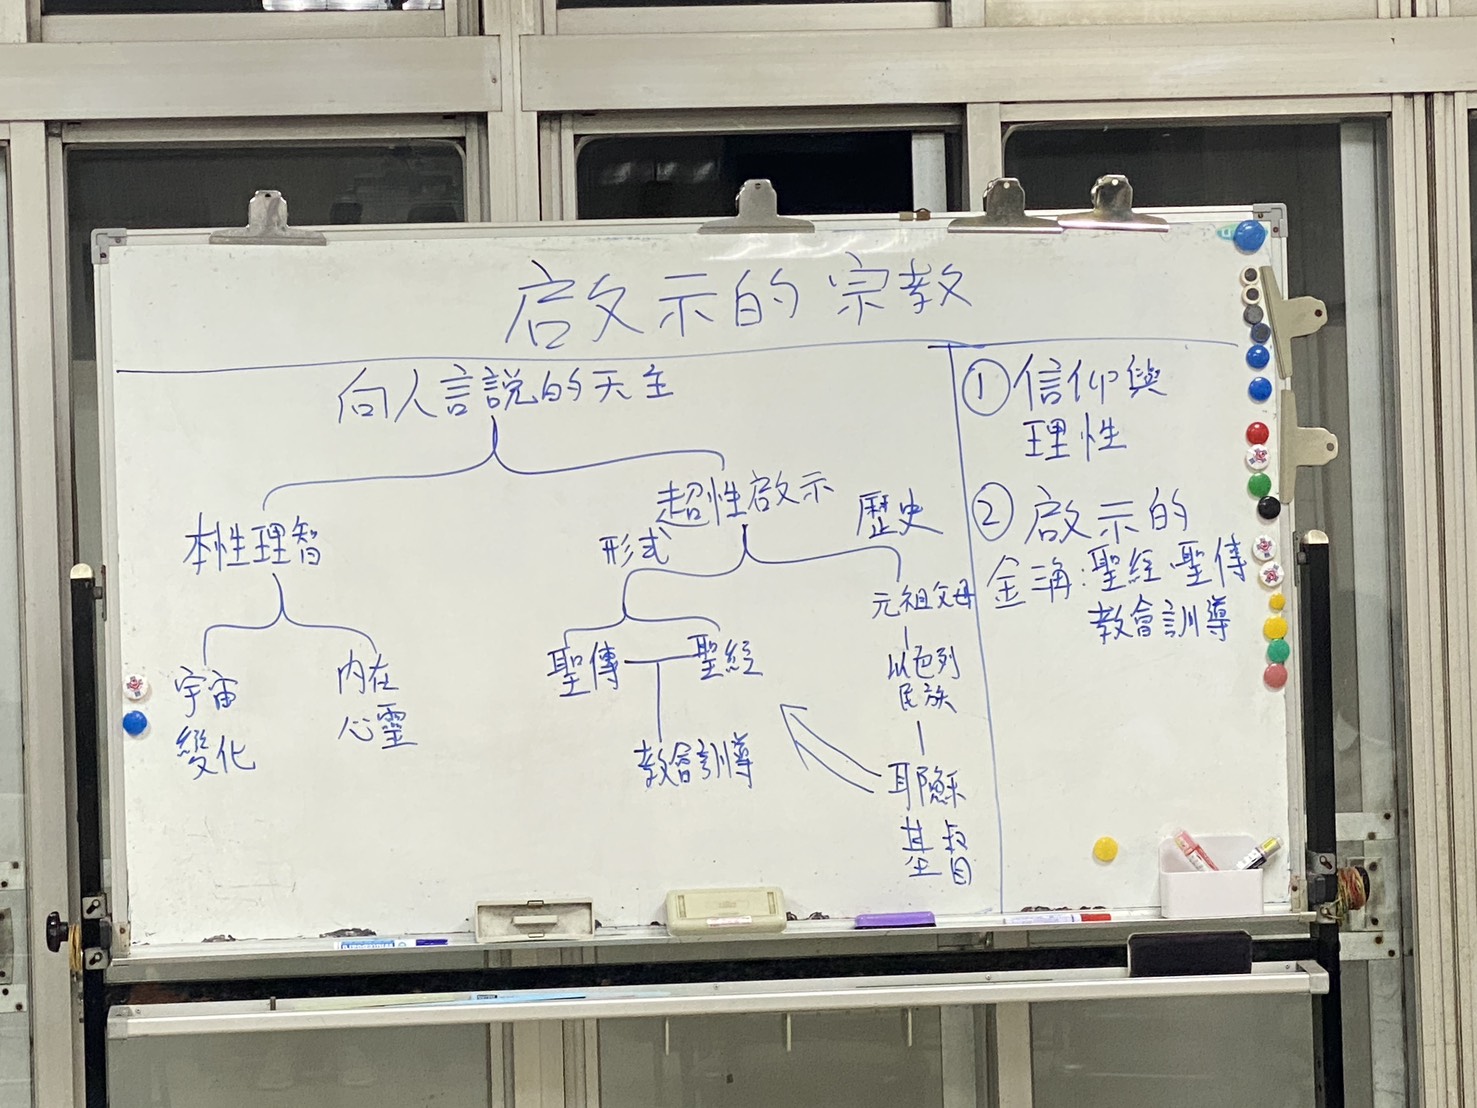 啟示的宗教
向人言說的天主
本性理智
宇宙
變化
內在
心靈
超性啟示
形式
聖傳
聖經
教會訓導
歷史
元祖父母
以色列
民族
耶穌
基督
① 信仰與
理性
② 啟示的
金海:聖經.聖傳
教會訓導